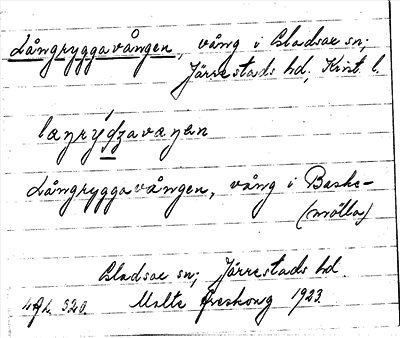 Långryggavången, vång i Gladsax sn;
Järrestads hd, Krist. l.
laŋrýdʒavaŋan
Långryggavången, vång i Baske-
(mölla)
Gladsax sn; Järrestads hd.
520. Malte Areskong 1923.